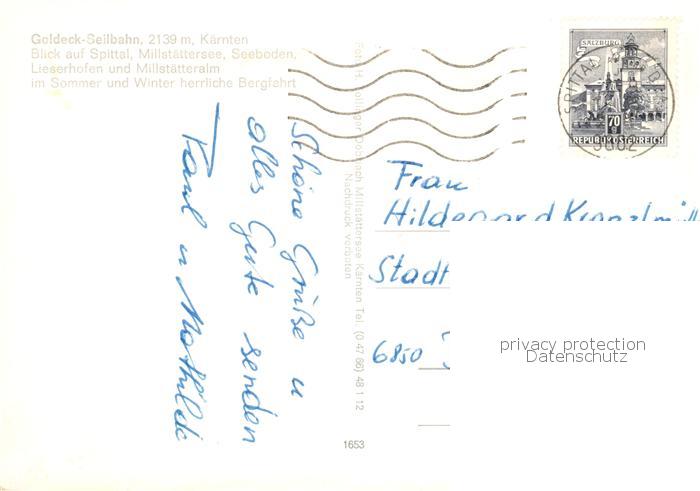 Goldeck-Seilbahn, 2139 m, Kärnten
Blick auf Spittal, Millstättersee, Seeboden,
Lieserhofen und Millstätteralm
im Sommer und Winter herrliche Bergfahrt
Schöne Grüße u
alles Gute senden
Karl u Mathilde
Foto H. Döbriach Millstättersee Kärnten Tel. (0 47 66) 48 1 12
Nachdruck verboten
1653
SALZBURG
70
REPUBLIK ÖSTERREICH
SPITTAL
Frau
Hildegard
Stadt
6850
privacy protection
Datenschutz